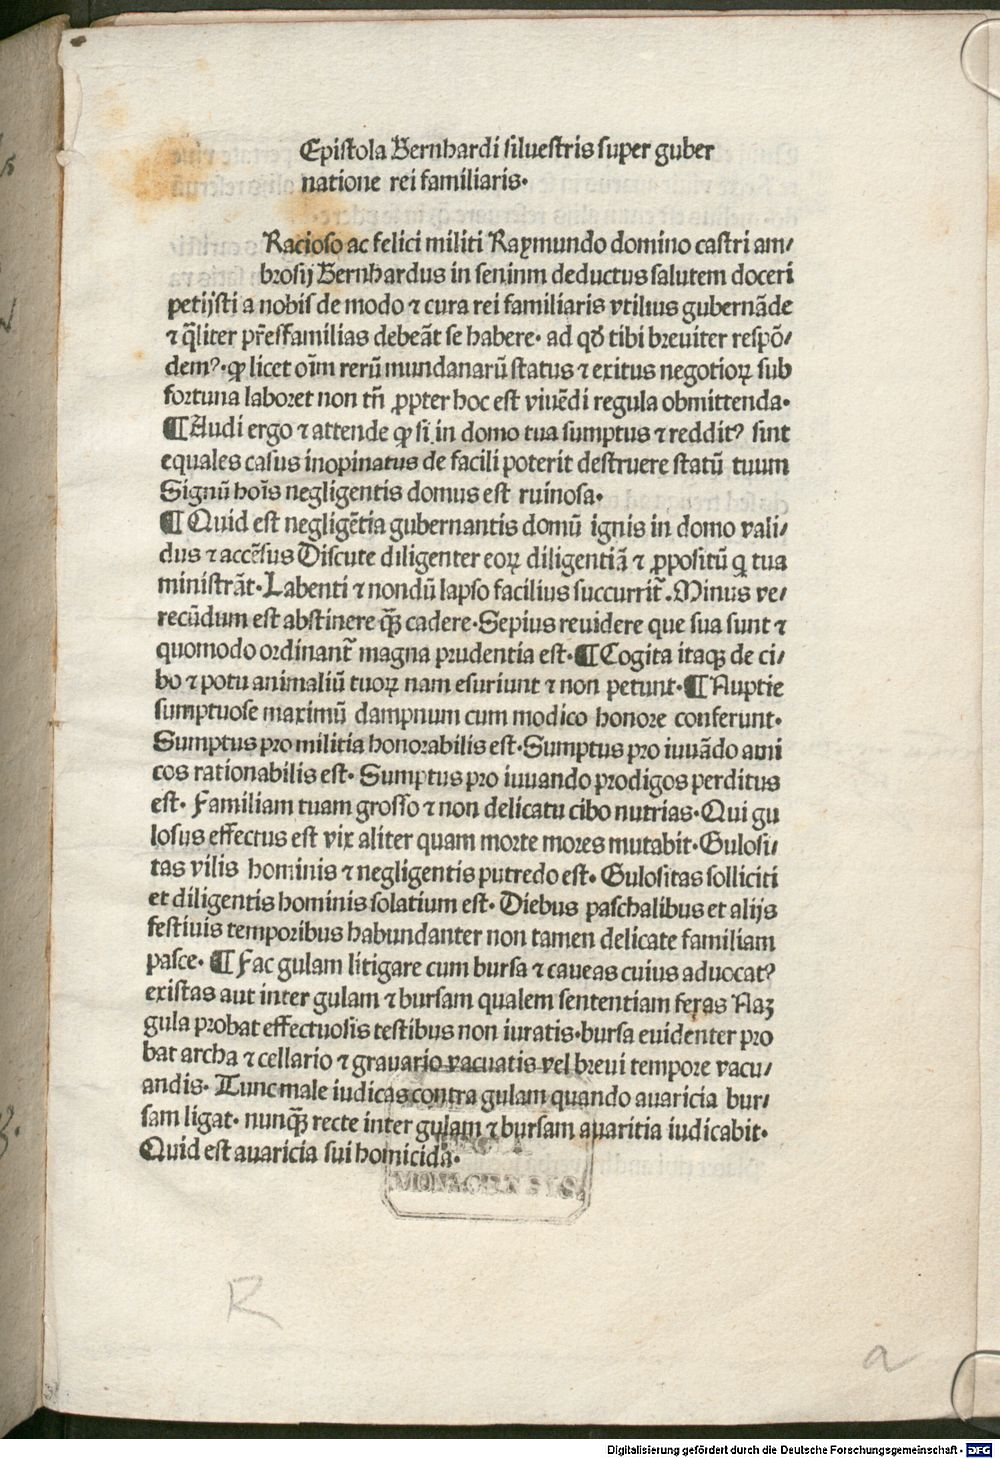 Epistola Bernhardi siluestris super guber
natione rei familiaris·
Racioso ac felici militi Raymundo domino castri am⸗
brosij Bernhardus in seninm deductus salutem doceri
petijsti a nobis de modo ⁊ cura rei familiaris vtilius gubernãde
⁊ q̃liter pr̃esfamilias debeãt se habere· ad qđ tibi breuiter respõ⸗
demꝰ·ꝙ licet oĩm rerũ mundanarũ status ⁊ exitus negotioꝝ sub
fortuna laboret non tñ ꝓpter hoc est viuẽdi regula obmittenda·
¶Audi ergo ⁊ attende ꝙ si in domo tua sumptus ⁊ redditꝰ sint
equales casus inopinatus de facili poterit destruere statũ tuum
Signũ hoĩs negligentis domus est ruinosa·
¶Quid est negligẽtia gubernantis domũ ignis in domo vali⸗
dus ⁊ accẽsus Discute diligenter eoꝝ diligentiã ⁊ ꝓpositũ q tua
ministrãt·Labenti ⁊ nondũ lapso facilius succurrit̃.Minus ve⸗
recũdum est abstinere q̃ꝫ cadere·Sepius reuidere que sua sunt ⁊
quomodo ordinant̃ magna prudentia est·¶Cogita itaqꝫ de ci⸗
bo ⁊ potu animaliũ tuoꝝ nam esuriunt ⁊ non petunt·¶Nuptie
sumptuose maximũ dampnum cum modico honore conferunt·
Sumptus pro militia honorabilis est·Sumptus pro iuuãdo ami
cos rationabilis est· Sumptus pro iuuando prodigos perditus
est· Familiam tuam grosso ⁊ non delicatu cibo nutrias·Qui gu
losus effectus est vix aliter quam morte mores mutabit·Gulosi⸗
tas vilis hominis ⁊ negligentis putredo est· Gulositas solliciti
et diligentis hominis solatium est· Diebus paschalibus et alijs
festiuis temporibus habundanter non tamen delicate familiam
pasce· ¶Fac gulam litigare cum bursa ⁊ caueas cuius aduocatꝰ
existas aut inter gulam ⁊ bursam qualem sententiam feras Naꝫ
gula probat effectuosis testibus non iuratis·bursa euidenter pro
bat archa ⁊ cellario ⁊ grauario vacuatis vel breui tempore vacu⸗
andis· Tunc male iudicas contra gulam quando auaricia bur⸗
sam ligat· nunq̃ꝫ recte inter gulam ⁊ bursam auaritia iudicabit·
Quid est auaricia sui homicida·
MONACENSIS.
R
a
Digitalisierung gefördert durch die Deutsche Forschungsgemeinschaft - DFG